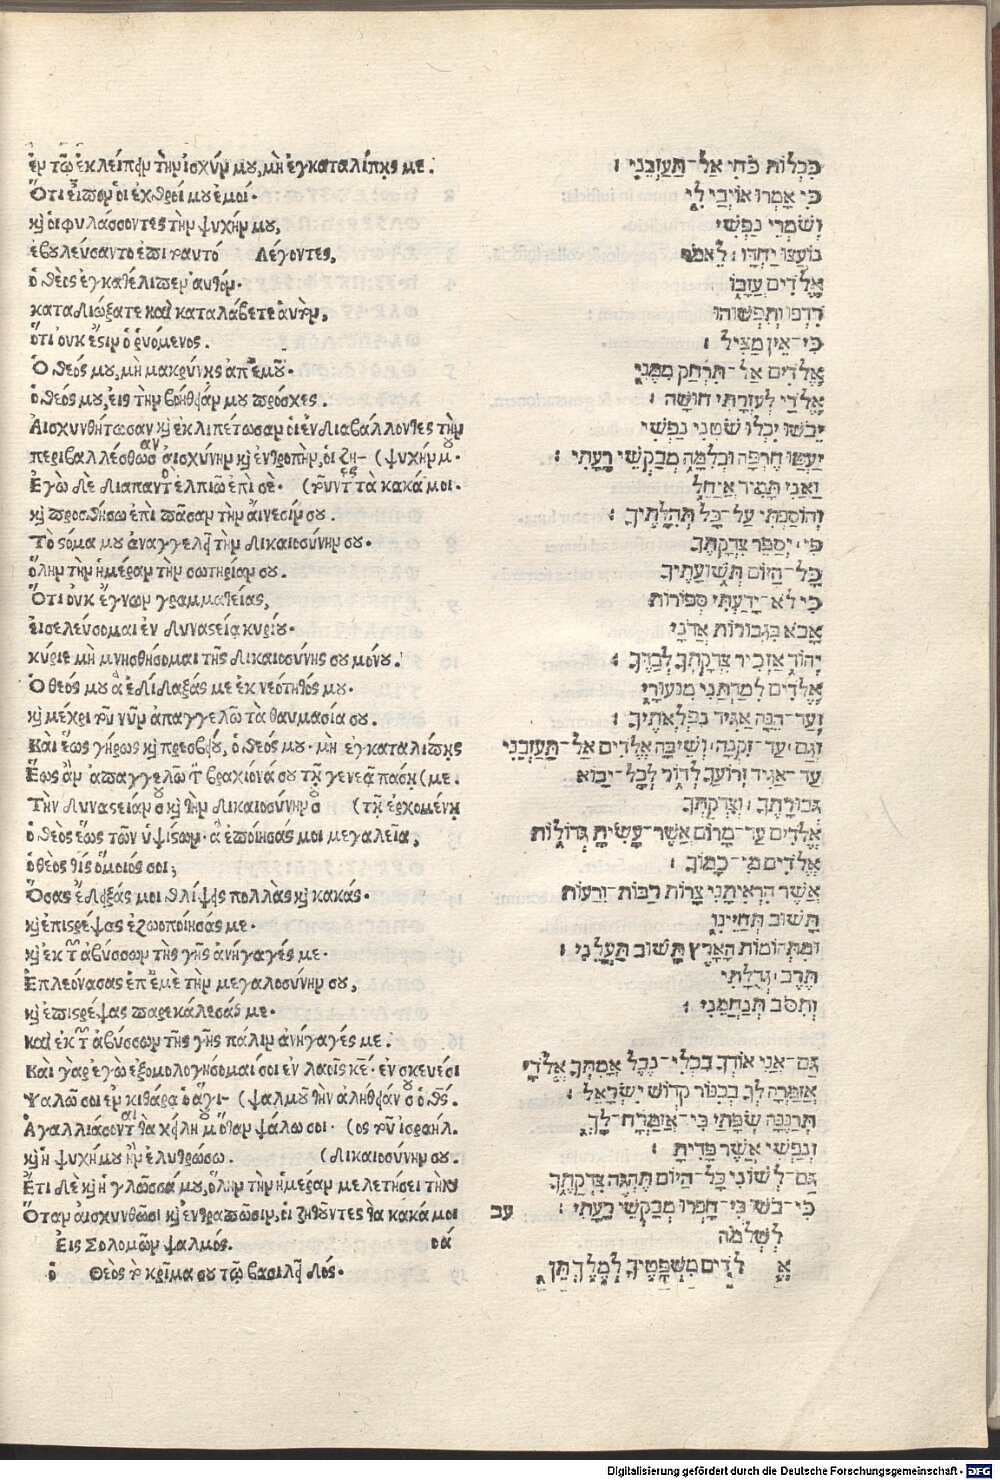 ἐν τῷ ἐκλείπειν τὴν ἰσχύν μου, μὴ ἐγκαταλίπῃς με.
Ὅτι εἶπον οἱ ἐχθροί μου ἐμοί.
κỳ οἱ φυλάσσοντες τὴν ψυχήν μου,
ἐβουλεύσαντο ἐπιτοαυτό λέγοντες,
ὁ θεὸς ἐγκατέλιπεν αὐτόν.
καταδιώξατε καὶ καταλάβετε αὐτόν,
ὅτι ουκ ἔστιν ὁ ῥυόμενος.
Ὁ θεός μου, μὴ μακρύνῃς ἀπ' ἐμοῦ.
ὁ θεός μου, εἰς τὴν βοήθειάν μου πρόσχες.
Αἰσχυνθήτωσαν κỳ ἐκλιπέτωσαν οἱ ἐνδιαβάλλοντες τὴν
περιβαλλέσθωσαν αἰσχύνην κỳ ἐντροπὴν, οἱ ζη- (ψυχήν μου.
Ἐγὼ δὲ διαπαντὸς ἐλπιῶ ἐπὶ σὲ. (τοῦντες τὰ κακά μοι.
κỳ προσθήσω ἐπὶ πᾶσαν τὴν αἴνεσίν σου.
Τὸ σόμα μου ἀναγγελεῖ τὴν δικαιοσύνην σου.
ὅλην τὴν ἡμέραν τὴν σωτηρίαν σου.
Ὅτι ουκ ἔγνων γραμματείας,
εἰσελεύσομαι ἐν δυναστείᾳ κυρίου.
κύριε μὴ μνησθήσομαι τῆς δικαιοσύνης σου μόνου.
Ὁ θεός μου ἃ ἐδίδαξάς με ἐκ νεότητός μου.
κỳ μέχρι τοῦ νῦν ἀπαγγελῶ τὰ θαυμασία σου.
Καὶ ἕως γήρως κỳ πρεσβείου, ὁ θεός μου. μὴ ἐγκαταλίπῃς
Ἕως ἂν ἀπαγγελῶ τὸν βραχίονά σου τῇ γενεᾷ πάσῃ (με.
Τὴν δυναστείαν σου κỳ τὴν δικαιοσύνην σου (τῇ ἐρχομένῃ
ὁ θεὸς ἕως τῶν ὑψίσων. ἃ ἐποίησάς μοι μεγαλεῖα,
ὁ θεὸς τίς ὅμοιός σοι;
Ὅσας ἔδειξάς μοι θλίψεις πολλὰς κỳ κακάς.
κỳ ἐπιστρέψας ἐζωοποίησάς με.
κỳ ἐκ τῶν ἀβύσσων τῆς γῆς ἀνήγαγές με.
Ἐπλεόνασας ἐπ' ἐμὲ τὴν μεγαλοσύνην σου,
κỳ ἐπιστρέψας παρεκάλεσάς με.
καὶ ἐκ τῶν ἀβύσσων τῆς γῆς πάλιν ἀνήγαγές με.
Καὶ γὰρ ἐγὼ ἐξομολογήσομαί σοι ἐν λαοῖς κε. ἐν σκεύεσι
Ψαλῶ σοι ἐν κιθάρᾳ ὁ ἅγι- (ψαλμοῦ τὴν ἀλήθειάν σου ὁ θς.
Ἀγαλλιάσονται τὰ χείλη μου ὅταν ψάλω σοι. (ος τοῦ ἰσραήλ.
κỳ ἡ ψυχή μου ἣν ἐλυτρώσω. (δικαιοσύνην σου.
Ἔτι δὲ κỳ ἡ γλῶσσά μου, ὅλην τὴν ἡμέραν μελετήσει τὴν
Ὅταν αἰσχυνθῶσι κỳ ἐντραπῶσιν, οἱ ζητοῦντες τὰ κακά μοι
Εἰς Σολομῶν ψαλμός. οά
ὁ Θεὸς τὸ κρῖμα σου τῷ βασιλεῖ δός.
כִּכְלוֹת כֹּחִי אַל־תַּעַזְבֵנִי׃
כִּי אָמְרוּ אוֹיְבַי לִי
וְשֹׁמְרֵי נַפְשִׁי
נוֹעֲצוּ יַחְדָּו׃ לֵאמֹר
אֱלֹדִים עֲזָבוֹ
רִדְפוּ וְתִפְשׂוּהוּ
כִּי־אֵין מַצִּיל׃
אֱלֹדִים אַל־תִּרְחַק מִמֶּנִּי
אֱלֹדַי לְעֶזְרָתִי חוּשָׁה׃
יֵבֹשׁוּ יִכְלוּ שֹׂטְנֵי נַפְשִׁי
יַעֲטוּ חֶרְפָּה וּכְלִמָּה מְבַקְשֵׁי רָעָתִי׃
וַאֲנִי תָּמִיד אֲיַחֵל
וְהוֹסַפְתִּי עַל־כָּל תְּהִלָּתֶיךָ׃
פִּי יְסַפֵּר צִדְקָתֶךָ
כָּל־הַיּוֹם תְּשׁוּעָתֶיךָ
כִּי לֹא־יָדַעְתִּי סְפוֹרוֹת
אָבֹא בִּגְבוּרוֹת אֲדֹנָי
יְהוִֹד אַזְכִּיר צִדְקָתְךָ לְבַדֶּךָ׃
אֱלֹדִים לִמַּדְתַּנִי מִנְּעוּרָי
וְעַד־הֵנָּה אַגִּיד נִפְלְאֹתֶיךָ׃
וְגַם־עַד־זִקְנָה וְשֵׂיבָה אֱלֹדִים אַל־תַּעַזְבֵנִי
עַד־אַגִּיד זְרוֹעֲךָ לְדוֹר לְכָל־יָבוֹא
גְּבוּרָתֶךָ׃ וְצִדְקָתְךָ
אֱלֹדִים עַד־מָרוֹם אֲשֶׁר־עָשִׂיתָ גְּדוֹלוֹת
אֱלֹדִים מִי־כָמוֹךָ׃
אֲשֶׁר הִרְאִיתַנִי צָרוֹת רַבּוֹת וְרָעוֹת
תָּשׁוּב תְּחַיֵּינִי
וּמִתְּהוֹמוֹת הָאָרֶץ תָּשׁוּב תַּעֲלֵנִי׃
תֶּרֶב־גְּדֻלָּתִי
וְתִסֹּב תְּנַחֲמֵנִי׃
גַּם־אֲנִי אוֹדְךָ בִכְלִי־נֶבֶל אֲמִתְּךָ אֱלֹדָי
אֲזַמְּרָה לְךָ בְכִנּוֹר קְדוֹשׁ יִשְׂרָאֵל׃
תְּרַנֵּנָּה שְׂפָתַי כִּי־אֲזַמְּרָה־לָּךְ
וְנַפְשִׁי אֲשֶׁר פָּדִיתָ׃
גַּם־לְשׁוֹנִי כָּל־הַיּוֹם תֶּהְגֶּה צִדְקָתֶךָ
כִּי־בֹשׁוּ כִּי־חָפְרוּ מְבַקְשֵׁי רָעָתִי׃ עב
לִשְׁלֹמֹה
אֱלֹדִים מִשְׁפָּטֶיךָ לְמֶלֶךְ תֵּן
Digitalisierung gefördert durch die Deutsche Forschungsgemeinschaft - DFG